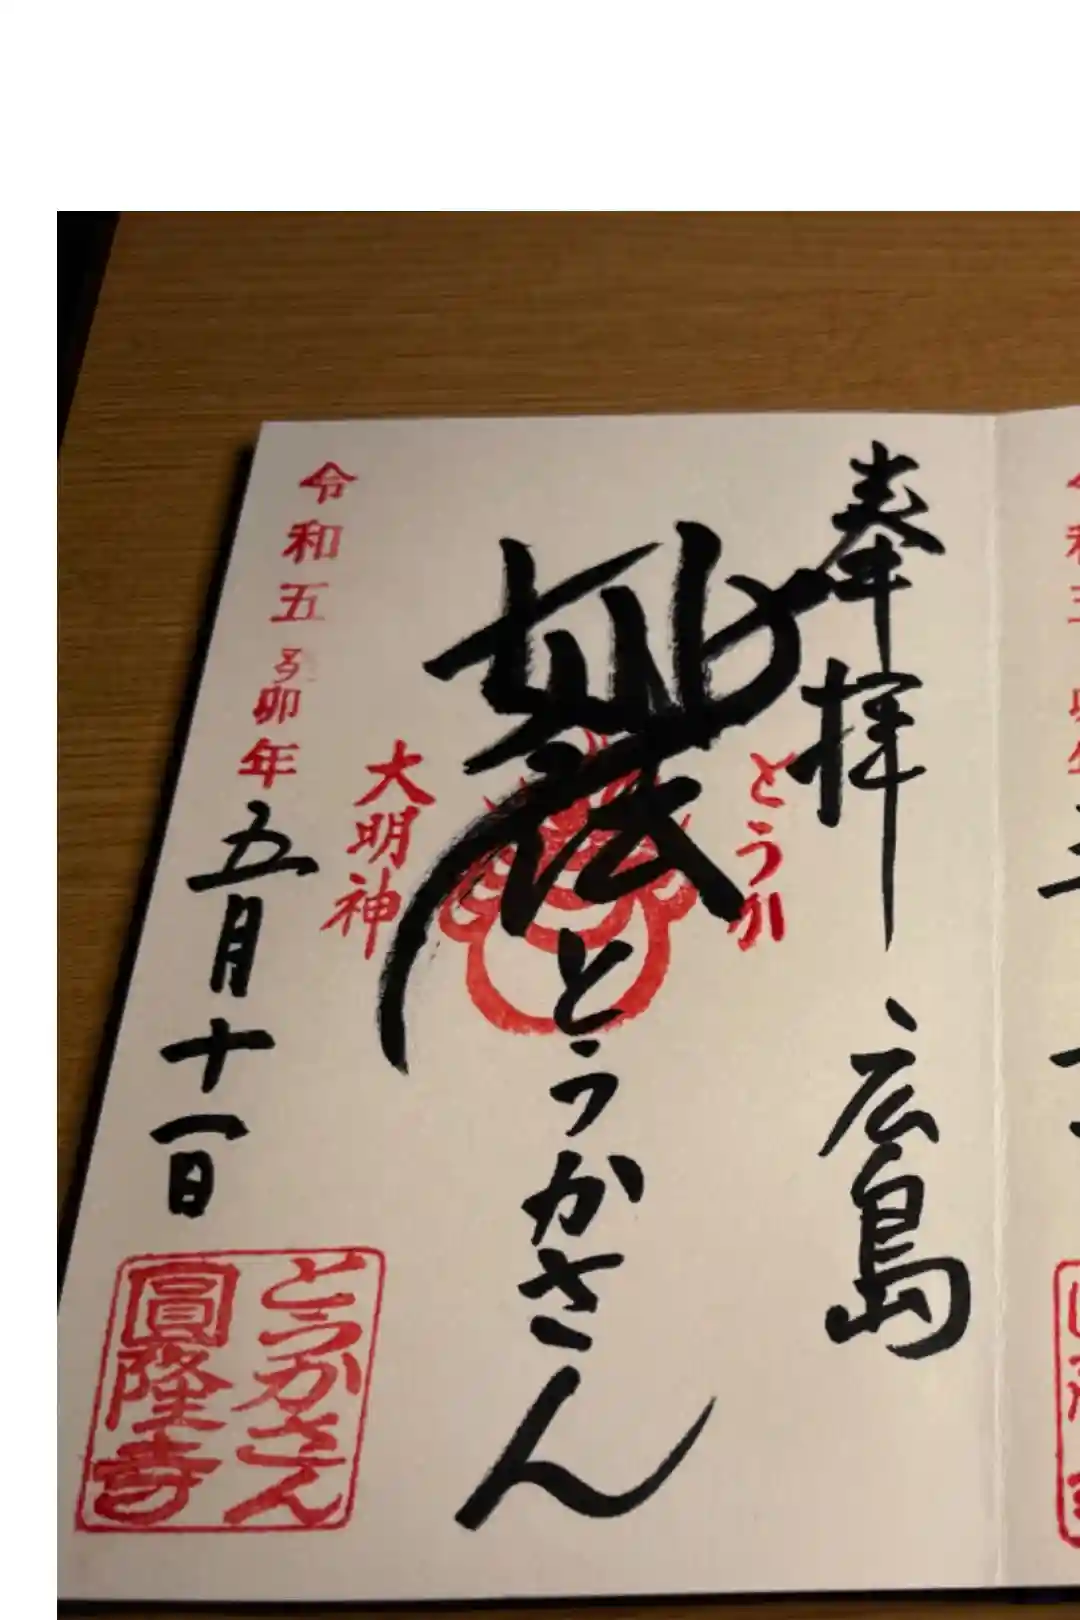 奉拝 広島
とうか
妙法 とうかさん
大明神
令和五 卯年 五月十一日
とうかさん
圓隆寺